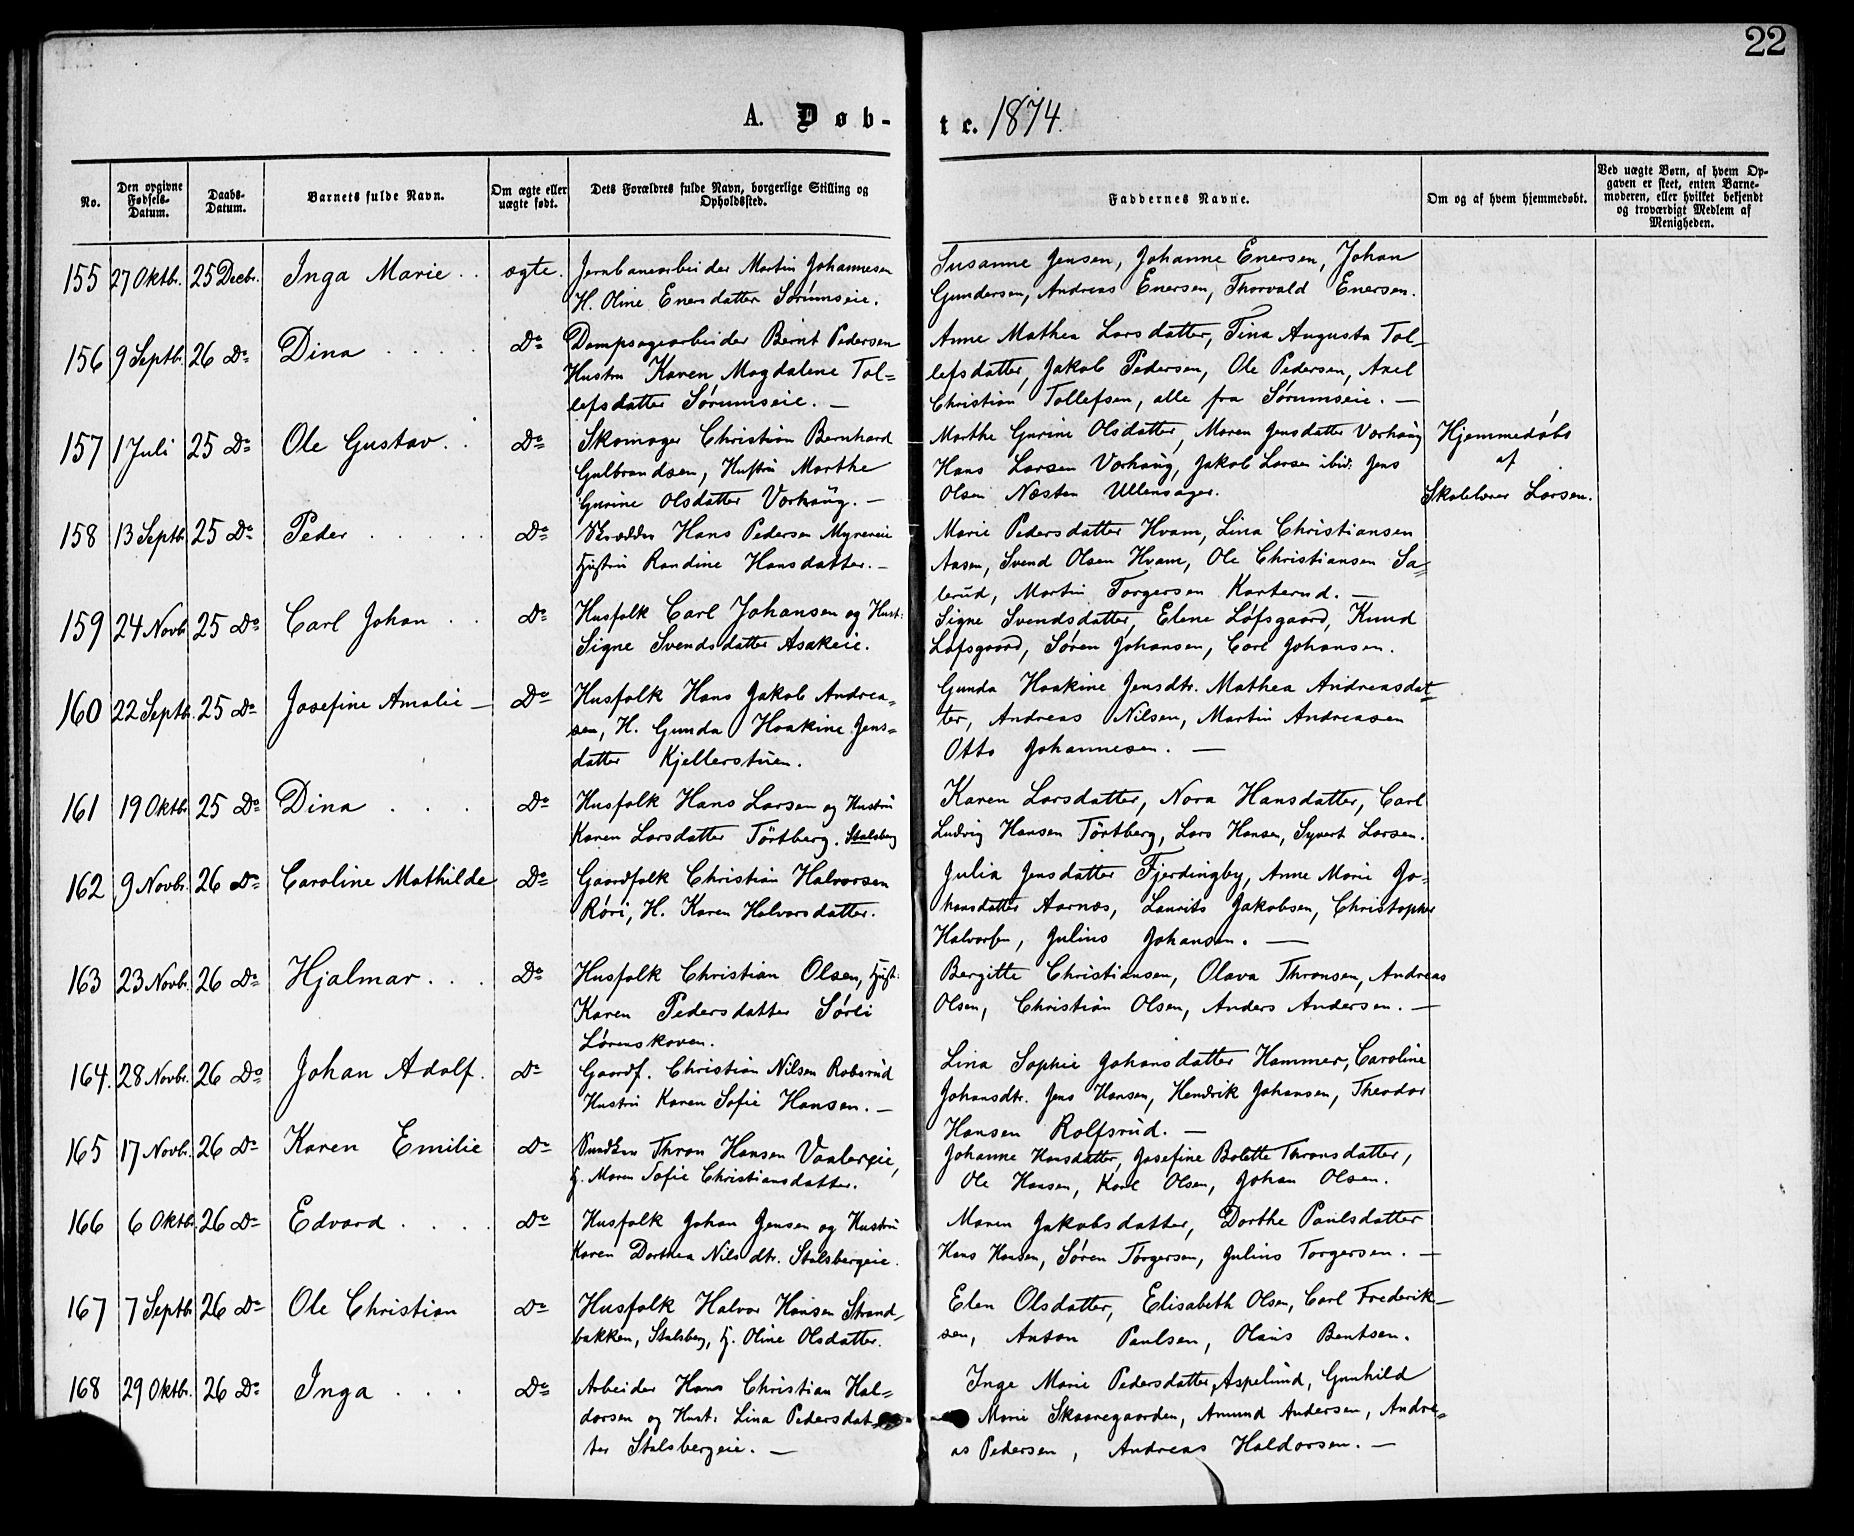 22
A. Døb-
te. 1874.
No.
Den opgivne Fødsels-Datum.
Daabs-Datum.
Barnets fulde Navn.
Om ægte eller uægte født.
Dets Forældres fulde Navn, borgerlige Stilling og Opholdssted.
Faddernes Navne.
Om og af hvem hjemmedøbt.
Ved uægte Børn, af hvem Opgaven er skeet, enten Barnemoderen, eller hvilket bekjendt og troværdigt Medlem af Menigheden.
155 27 Oktbr. 25 Decbr. Inga Marie . . ægte. Jernbanearbeider Martin Johannesen
H. Oline Enersdatter Sørumseie.
Susanne Jensen, Johanne Enersen, Johan
Gundersen, Andreas Enersen, Thorvald Enersen.
156 9 Septbr. 26 Do Dina . . . . Do Dampsagearbeider Bernt Pedersen
Hustru Karen Magdalene Tol=
lefsdatter Sørumseie. —
Anne Mathea Larsdatter, Tina Augusta Tol-
lefsdatter, Jakob Pedersen, Ole Pedersen, Axel
Christian Tollefsen, alle fra Sørumseie. —
157 1 Juli 25 Do Ole Gustav . . Do Skomager Christian Bernhard
Gulbrandsen, Hustru Marthe
Gurine Olsdatter Vorhaug. —
Marthe Gurine Olsdatter, Maren Jensdatter Vorhaug
Hans Larsen Vorhaug, Jakob Larsen ibid. Jens
Olsen Næsten Ullensager.
Hjemmedøbt
af
Skolelærer Larsen.
158 13 Septbr 25 Do Peder . . . . . Do Skrædder Hans Pedersen Myrereie
Hustru Randine Hansdatter. —
Marie Pedersdatter Hvam, Lina Christiansen
Aasen, Svend Olsen Hvam, Ole Christiansen Sa=
lerud, Martin Torgersen Karterud. —
159 24 Novbr 25 Do Carl Johan . . Do Husfolk Carl Johansen og Hust:
Signe Svendsdatter Asakeie.
Signe Svendsdatter, Elene Løfsgaard, Knud
Løfsgaard, Søren Johansen, Carl Johansen.
160 22 Septbr. 25 Do Josefine Amalie — Do Husfolk Hans Jakob Andrea=
sen, H. Gunda Haakine Jens=
datter Kjellerstuen.
Gunda Haakine Jensdtr. Mathea Andreasdat=
ter, Andreas Nilsen, Martin Andreasen
Otto Johannesen. —
161 19 Oktbr 25 Do Dina . . . Do Husfolk Hans Larsen og Hustru
Karen Larsdatter Törtberg. Stalsberg
Karen Larsdatter, Nora Hansdatter, Carl
Ludvig Hansen Törtberg, Lars Hansen, Syvert Larsen.
162 9 Novbr. 26 Do Caroline Mathilde Do Gaardfolk Christian Halvorsen
Röri, H. Karen Halvorsdatter.
Julia Jensdatter Fjerdingby, Anne Marie Jo=
hansdatter Aarnæs, Laurits Jakobsen, Christopher
Halvorsen, Julius Johansen. —
163 23 Novbr. 26 Do Hjalmar . . . Do Husfolk Christian Olsen, Hust:
Karen Pedersdatter Sörli
Lørenskoven.
Bergitte Christiansen, Olava Thronsen, Andreas
Olsen, Christian Olsen, Anders Andersen. —
164. 28 Novbr. 26 Do Johan Adolf. Do Gaardf. Christian Nilsen Robsrud
Hustru Karen Sofie Hansen. —
Lina Sophie Johansdatter Hammer, Caroline
Johansdtr. Jens Hansen, Hendrik Johansen, Theodor
Hansen Rolfsrud. —
165 17 Novbr. 26 Do Karen Emilie Do Thron Hansen Vaalereie,
H. Maren Sofie Christiansdatter.
Johanne Hansdatter, Josefine Bolette Thronsdatter,
Ole Hansen, Karl Olsen, Johan Olsen.
166 6 Oktbr. 26 Do Edvard . . . . Do Husfolk Johan Jensen og Hustru
Karen Dorthea Nilsdtr. Stalsbergeie.
Maren Jakobsdatter, Dorthe Paulsdatter
Hans Hansen, Søren Torgersen, Julius Torgersen. —
167 7 Septbr 26 Do Ole Christian Do Husfolk Halvor Hansen Strand-
bakken, Stalsberg, H. Oline Olsdatter.
Elen Olsdatter, Elisabeth Olsen, Carl Frederik-
sen, Anton Paulsen, Olaus Bentsen.
168 29 Oktbr. 26 Do Inga . . . Do Arbeider Hans Christian Hal=
dorsen og Hust: Lina Pedersdat
ter Stalsbergeie. —
Inge Marie Pedersdatter Aspelund, Gunhild
Marie Skaaregaarden, Amund Andersen, Andre=
as Pedersen, Andreas Haldorsen. —